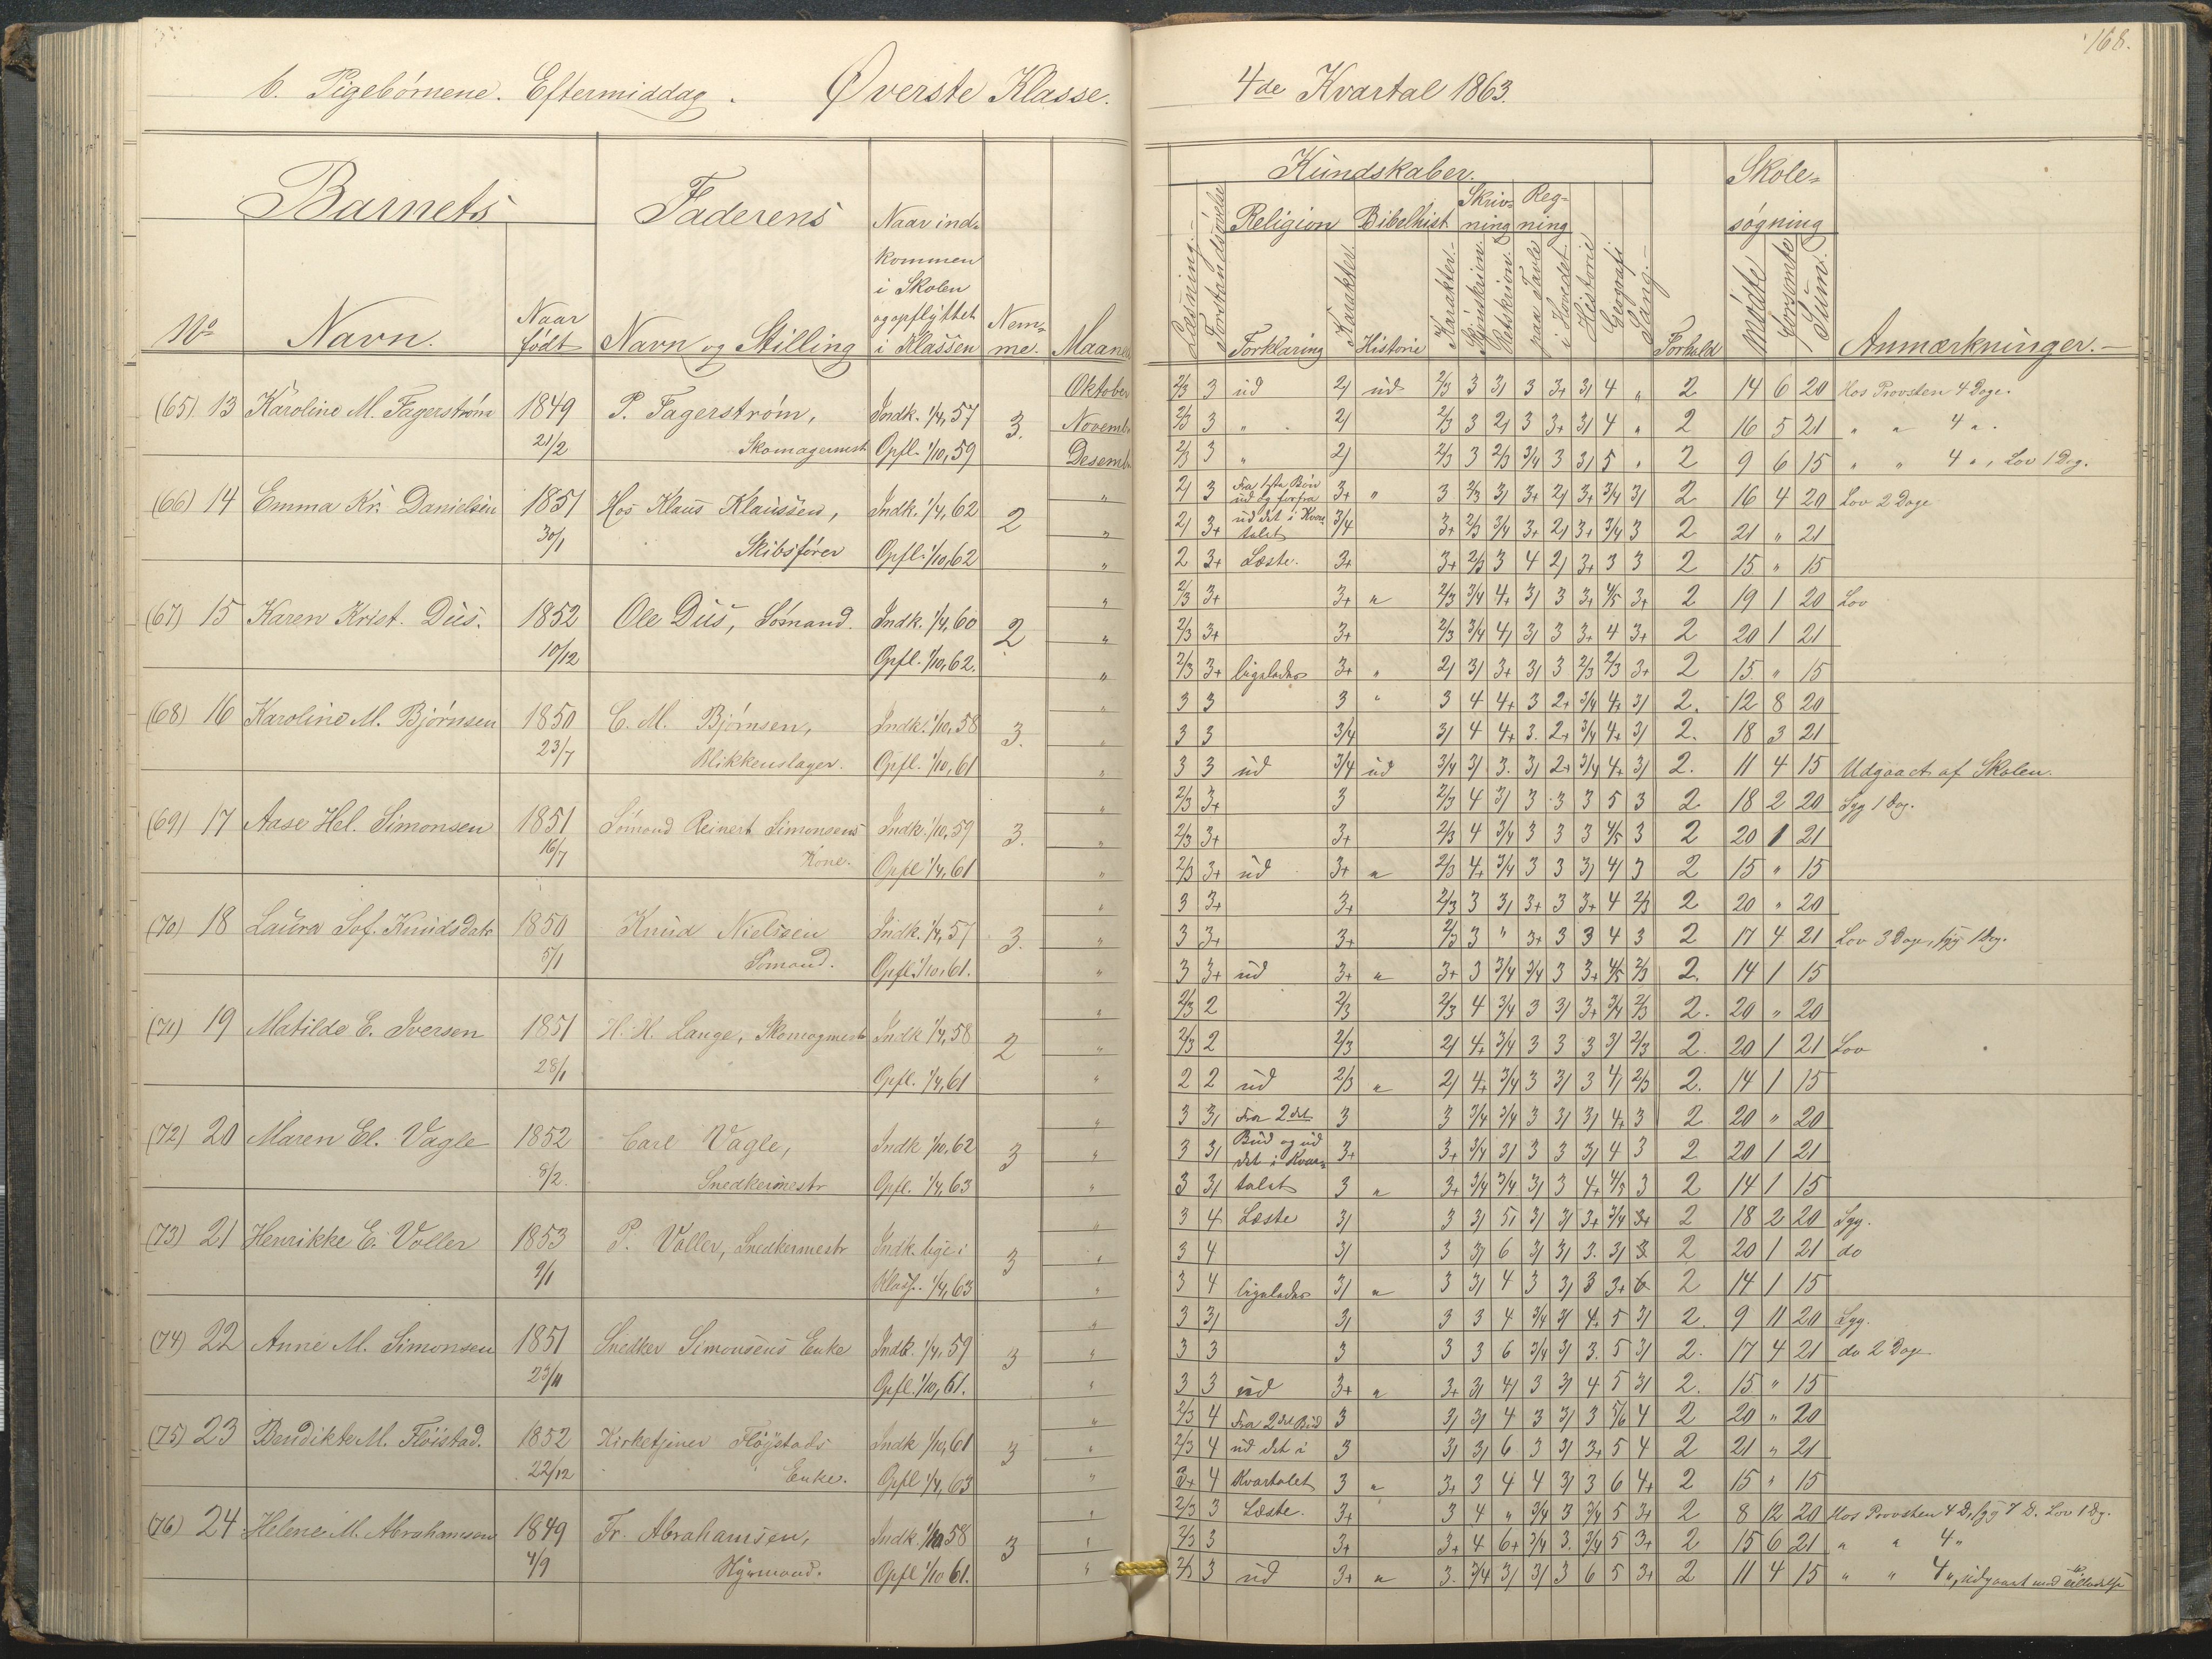 168.
b. Pigebørnene. Eftermiddag. Øverste Klasse. 4de Kvartal 1863.
Barnets Faderens Naar ind- kommen i Skolen og opflyttet i Klassen Nem- me. Maaned
No Navn. Naar født Navn og Stilling
Kundskaber. Skole- søgning
Læsning. Forstandsøvelse Religion Bibelhist. Skriv- ning Reg- ning Historie Geografi Sang.
Forklaring Karakter. Historie Karakter. Skjønskrivn. Retskrivn. paa Tavle i Hovedet Forhold Mødte Forsømte Sum. Anmærkninger.
(65) 13 Karoline M. Fagerstrøm 1849 P. Fagerstrøm, Indk. 1/4, 57 3. Oktober 2/3 3 ud 2/ ud 2/3 3 3/ 3 3+ 3/ 4 " 2 14 6 20 Hos Provsten 4 Dage.
21/2 Skomagermest Opfl. 1/10, 59 Novemb 2/3 3 " 2/ 2/3 3 2/ 3 3+ 3/ 4 " 2 16 5 21 " " 4 ".
Desemb 2/3 3 " 2/ 2/3 3 2/3 3/4 3 3/ 5 " 2 9 6 15 " " 4 ", Lov 1 Dag.
(66) 14 Emma Kr. Danielsen 1851 Hos Klaus Klaussen, Indk. 1/4, 62 2 " 2/ 3 Fra Bøn ud og forfra 3+ " 3 2/3 3/ 3+ 2/ 3+ 3/4 3/ 2 16 4 20 Lov 2 Dage
30/1 Skibsfører Opfl. 1/10, 62 " 2/ 3+ ud det i Kvar- talet 3/4 3+ 2/3 3/4 3+ 2/ 3+ 3/4 3 2 21 " 21
" 2 3+ Læste. 3+ 3+ 2/3 3 4 2/ 3+ 3 3 2 15 " 15
(67) 15 Karen Krist. Dus. 1852 Ole Dus, Sømand. Indk. 1/4, 60 2 " 2/3 3+ 3+ " 2/3 3/4 4+ 3/ 3 3+ 4/5 3+ 2 19 1 20 Lov
10/12 Opfl. 1/10, 62. " 2/3 3+ 3+ 2/3 3/4 4/ 3/ 3 3+ 4 3+ 2 20 1 21
" 2/3 3+ ligeledes 3+ " 2/ 3/ 3+ 3/ 3 2/3 2/3 3+ 2 15 " 15
(68) 16 Karoline M. Bjørnsen 1850 C. M. Bjørnsen, Indk. 1/10, 58 3. " 3 3 3 " 3 4 4+ 3 2+ 3/4 4+ 3/ 2. 12 8 20
23/7 Blikkenslager. Opfl. 1/10, 61 " 3 3 3/4 3/ 4 4+ 3. 2+ 3/4 4+ 3/ 2. 18 3 21
" 3 3 ud 3/4 ud 3/4 3/ 3. 3/ 2+ 3/4 4+ 3/ 2. 11 4 15 Udgaaet af Skolen.
(69) 17 Aase Hel. Simonsen 1851 Sømand Reinert Simonsens Indk. 1/10, 59 3. " 2/3 3+ 3 2/3 4 3/ 3 3 3 5 3 2 18 2 20 Syg 1 Dag.
16/7 Kone. Opfl 1/4, 61 " 2/3 3+ 3+ 2/3 4 3/4 3 3 3 4/5 3 2 20 1 21
" 2/3 3+ ud 3+ " 2/3 4+ 3/4 3 3 3/ 4/ 3 2 15 " 15
(70) 18 Laura Sof. Knudsdatr 1850 Knud Nielsen Indk. 1/4, 57 3. " 3 3+ 3+ 2/3 3 3/ 3+ 3 3+ 4 2/3 2 20 " 20
5/1 Sømand. Opfl. 1/10, 61. " 3 3+ 3+ 2/3 3 " 3+ 3 3 4 3 2 17 4 21 Lov 3 Dage, syg 1 Dag.
" 3 3+ ud 3+ " 3+ 3 3/4 3/4 3 3+ 4/5 2/3 2. 14 1 15
(71) 19 Matilde E. Iversen 1851 H. H. Lange, Skomagmestr Indk 1/4, 58 2 " 2/3 2 2/3 2/3 4 3/4 3 3/ 3+ 3/4 2/3 2. 20 " 20
28/1 Opfl. 1/4, 61 " 2/3 2 2/3 2/ 4+ 3/4 3 3 3 3/ 2/3 2. 20 1 21 Lov
" 2 2 ud 2/3 " 2/ 4+ 3/4 3 3/ 3 4/ 2/3 2. 14 1 15
(72) 20 Maren El. Vagle 1852 Carl Vagle, Indk 1/10, 62 3 " 3 3/ Fra 2det 3 3 3/4 3/4 3 3/ 3/ 4+ 3 2. 20 " 20
8/2. Snedkermestr Opfl. 1/4, 63 " 3 3/ Bud og ud det i Kvar- 3+ 3+ 3/4 3/ 3 3 3/ 4 3 2 20 1 21
" 3 3/ talet 3 " 3+ 3/4 3/4 3/ 3 4+ 4/5 3 2 14 1 15
(73) 21 Henrikke E. Voller 1853 P. Voller, Snedkermestr Indk. lige i 3 " 3 4 Læste 3/ 3 3/ 5/ 3/ 3/ 3+ 3/4 3+ 2 18 2 20 Syg.
9/1 Klass. 1/4, 63 " 3 4 3/ 3 3/ 6 3/ 3/ 3. 3/ 3. 2 20 1 21 do
" 3 4 ligeledes 3/ " 3 3/ 4 3 3/ 3 3+ 6 2 14 1 15
(74) 22 Anne M. Simonsen 1851 Snedker Simonsens Enke Indk. 1/4, 59 3 " 3 3/ 3/ 3 3 4 3/4 3/ 4. 5 3/ 2. 9 11 20 Syg.
23/11 Opfl. 1/10, 61. " 3 3 3 3 3 6 3/4 3/ 3. 5 3/ 2. 17 4 21 do 2 Dage
" 3 3 ud 3+ " 3+ 3/ 4/ 3 3/ 4 5 3/ 2. 15 " 15
(75) 23 Bendikte M. Fløistad. 1852 Kirketjener Fløystads Indk 1/10, 61 3 " 2/3 4 Fra 2det Bud 3 3/ 3/ 4 3 3/ 3 5/6 4 2 20 " 20
22/12 Enke. Opfl 1/4, 63 " 2/3 4 ud det i 3 3/ 3/ 6 3 3/ 3+ 5 4 2 21 " 21
" 3+ 4 Kvartalet 3 " 3+ 3 4 4 3/ 3 6 4+ 2 15 " 15
(76) 24 Helene M. Abrahamsen 1849 Fr. Abrahamsen, Indk 1/10 58 3 " 2/3 3 Læste. 3+ 3 4 " 3/4 3 3/4 5 3+ 2 8 12 20 Hos Provsten 4 D, syg 7 D. Lov 1 Dg.
4/9 Opfl 1/10 61. " 2/3 3 3+ 3+ 4 6+ 3/4 3. 3/4 5 3+ 2 15 6 21 " " 4 "
" 2/3 3 ud 3+ " 3. 3/4 3/ 3/ 3 6 5 3+ 2 11 4 15 " " 4 ", udgaaet med